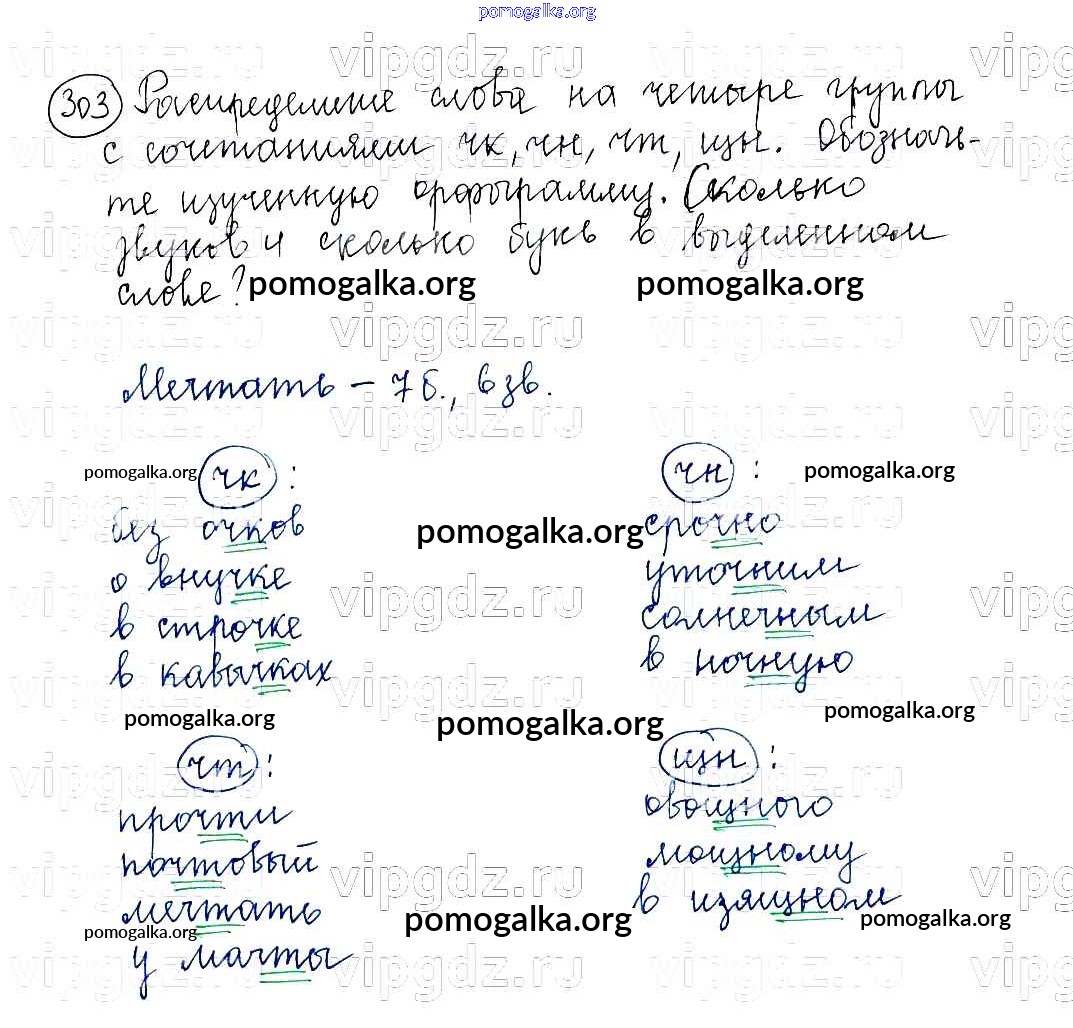 pomogalka.org
303 Распределите слова на четыре группы
с сочетаниями чк, чн, чт, щн. Обозначь-
те изученную орфограмму. Сколько
звуков и сколько букв в выделенном
слове?
pomogalka.org pomogalka.org
vipgdz.ru
Мечтать – 7 б., 6 зв.
pomogalka.org
чк:
без очков
о внучке
в строчке
в кавычках
pomogalka.org
чн:
pomogalka.org
срочно
уточним
солнечным
в ночную
pomogalka.org
pomogalka.org
pomogalka.org
чт:
прочти
почтовый
мечтать
pomogalka.org
у мачты
щн:
овощного
мощному
в изящном
pomogalka.org
pomogalka.org